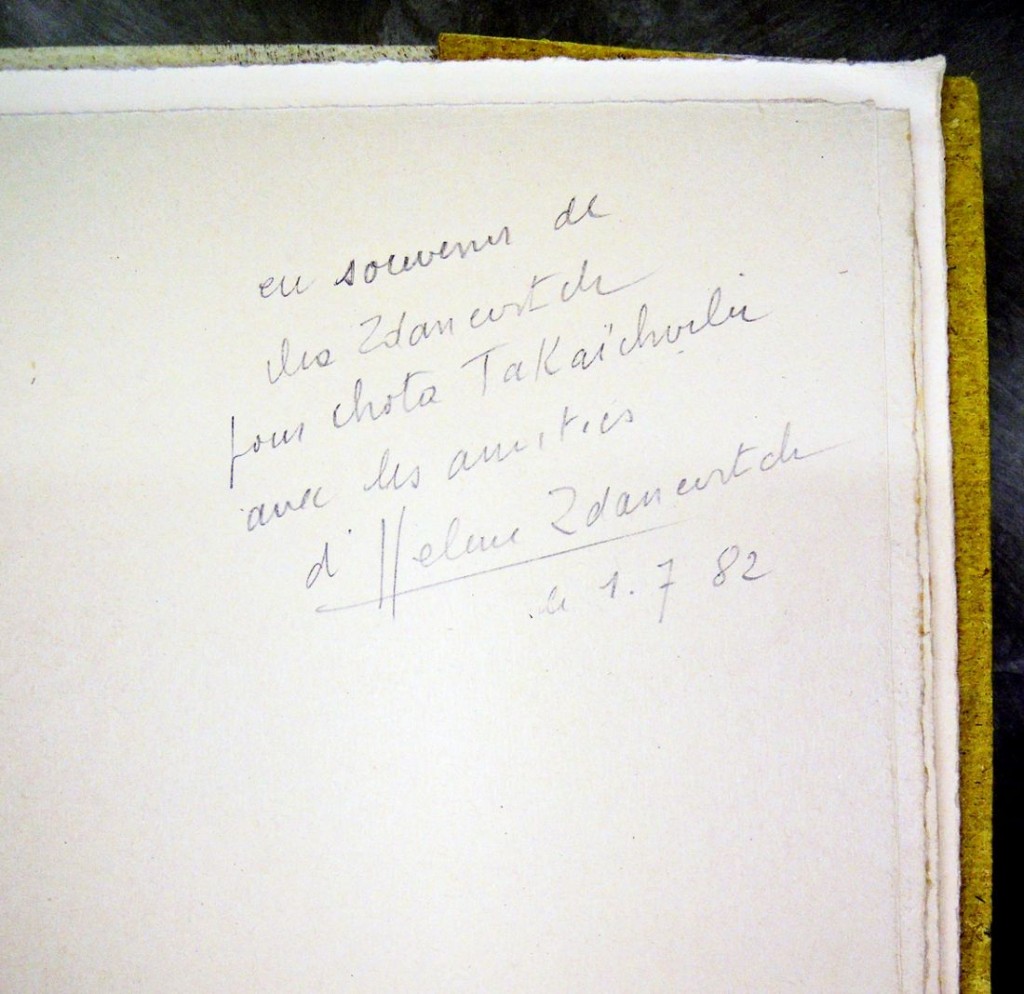 en souvenir de
Ilia Zdanevitch
pour Chota Takaïchvili
avec les amitiés
d'Helene Zdanevitch
le 1.7 82